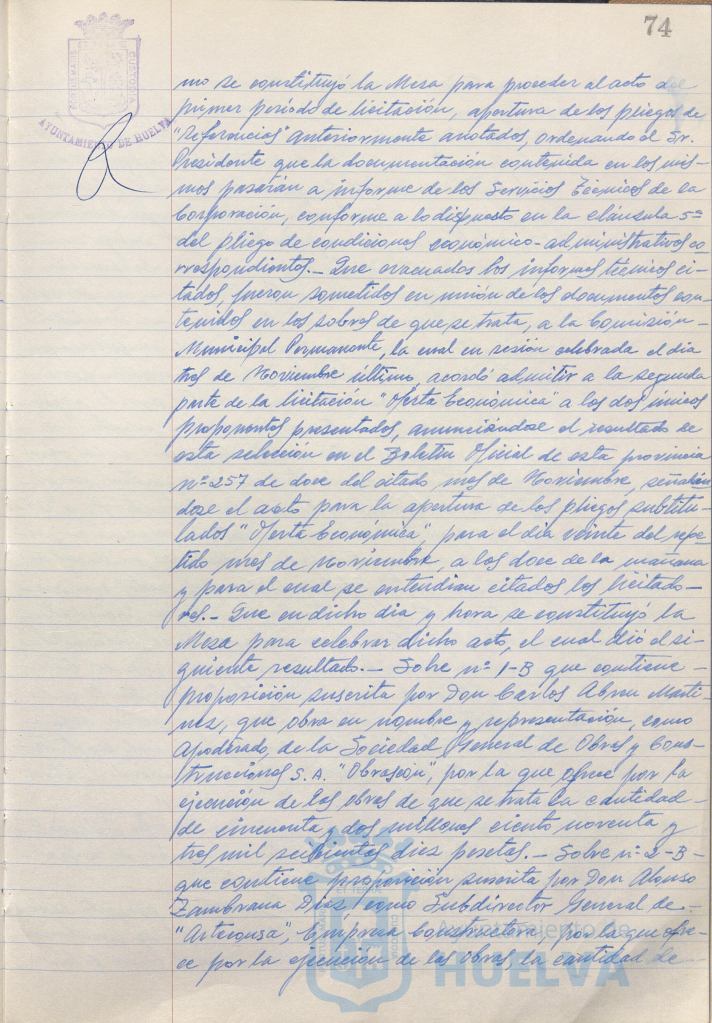 74
PORTUS MARIS CUSTODIA
AYUNTAMIENTO DE HUELVA
mo se constituyó la Mesa para proceder al acto del
primer período de licitación, apertura de los pliegos de
"Referencias" anteriormente anotados, ordenando el Sr.
Presidente que la documentación contenida en los mis-
mos pasarán a informe de los Servicios Técnicos de la
Corporación, conforme a lo dispuesto en la cláusula 5ª
del pliego de condiciones económico-administrativas co-
rrespondientes.- Que evacuados los informes técnicos ci-
tados, fueron sometidos en unión de los documentos con-
tenidos en los sobres de que se trata, a la Comisión-
Municipal Permanente, la cual en sesión celebrada el dia
tres de Noviembre último, acordó admitir a la segunda
parte de la licitación "Oferta Económica" a los dos únicos
proponentes presentados, anunciándose el resultado de
esta selección en el Boletín Oficial de esta provincia
nº 257 de doce del citado mes de Noviembre, señalán
dose el acto para la apertura de los pliegos subtitu-
lados "Oferta Económica", para el dia veinte del repe-
tido mes de Noviembre, a las doce de la mañana
y para el cual se entendian citados los licitado-
res.- Que en dicho dia y hora se constituyó la
Mesa para celebrar dicho acto, el cual dió el si-
guiente resultado.- Sobre nº 1-B que contiene-
proposición suscrita por Don Carlos Abreu Marti-
nez, que obra en nombre y representación, como
Apoderado, de la Sociedad General de Obras y Cons-
trucciones S.A. "Obrascón", por la que ofrece por la
ejecución de las obras de que se trata la cantidad-
de cincuenta y dos millones ciento noventa y
tres mil seiscientos diez pesetas.- Sobre nº 2-B-
que contiene proposición suscrita por Don Alonso
Zambrana Diaz, como Subdirector General de-
"Arteconsa", Empresa Constructora, por la que ofre-
ce por la ejecución de las obras, la cantidad de-
Ayuntamiento de
HUELVA